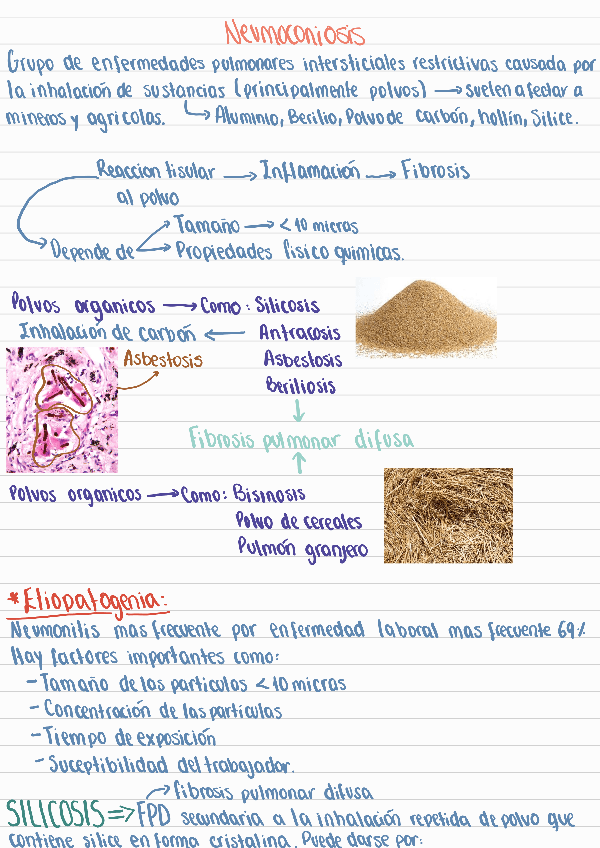 Neumoconiosis
Grupo de enfermedades pulmonares intersticiales restrictivas causada por
la inhalación de sustancias (principalmente polvos) → suelen afectar a
mineros y agricolas. → Aluminio, Berilio, Polvo de carbón, hollín, Silice.
Reaccion tisular → Inflamación → Fibrosis
al polvo
Tamaño → < 10 micras
Depende de → Propiedades fisico quimicas.
Polvos organicos → Como: Silicosis
Inhalación de carbón ← Antracosis
Asbestosis
Asbestosis
Beriliosis
Fibrosis pulmonar difusa
Polvos organicos → Como: Bisinosis
Polvo de cereales
Pulmón granjero
*Etiopatogenia:
Neumonitis mas frecuente por enfermedad laboral mas frecuente 69%
Hay factores importantes como:
- Tamaño de las particulas < 10 micras
- Concentración de las particulas
- Tiempo de exposición
- Suceptibilidad del trabajador.
fibrosis pulmonar difusa
SILICOSIS ⇒ FPD secundaria a la inhalación repetida de polvo que
contiene silice en forma cristalina. Puede darse por: